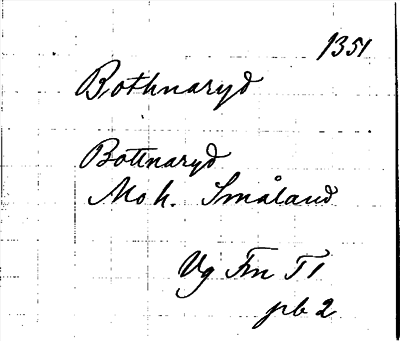 1351
Bothnaryd
Bottnaryd
Mo h. Småland
Vg Fm T1
pb 2